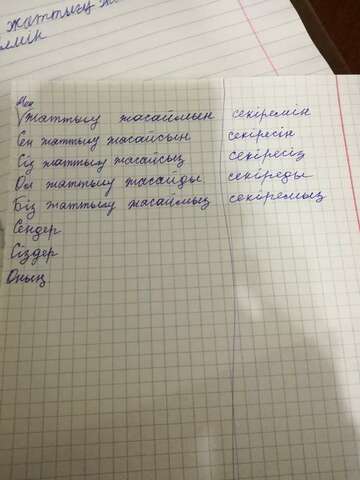 жаттығу жа
мін
Мен
жаттығу жасаймын секіремін
Сен жаттығу жасайсың секіресің
Сіз жаттығу жасайсыз секіресіз
Ол жаттығу жасайды секіреді
Біз жаттығу жасаймыз секіреміз
Сендер
Сіздер
Оның